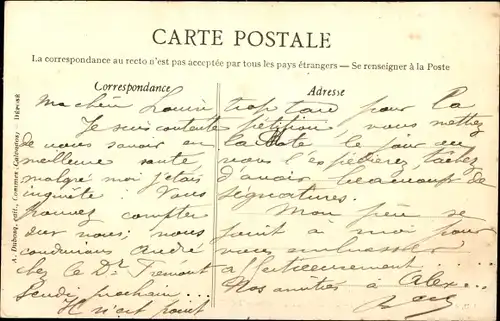 CARTE POSTALE
La correspondance au recto n'est pas acceptée par tous les pays étrangers — Se renseigner à la Poste
Correspondance
Ma chère
Je suis contente
de vous savoir en
meilleure santé
malgré moi j'étais
inquiète. Vous
pouvez compter
sur nous; nous
conduirons André
chez le Dr Frémont
Lundi prochain...
Il n'est point
Adresse
trop tard pour la
pétition, vous mettez
la date le jour où
vous l'expédierez, tâchez
d'avoir beaucoup de
signatures.
Mon père se
joint à moi pour
vous embrasser
affectueusement.....
Nos amitiés à Alex...
A. Dubosq, édit., Commer. DÉPOSÉ